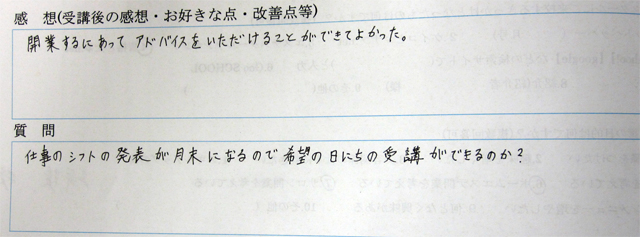 感　想(受講後の感想・お好きな点・改善点等)
開業するにあって アドバイスをいただけることができてよかった。
質　問
仕事のシフトの発表が月末になるので希望の日にちの受講ができるのか?